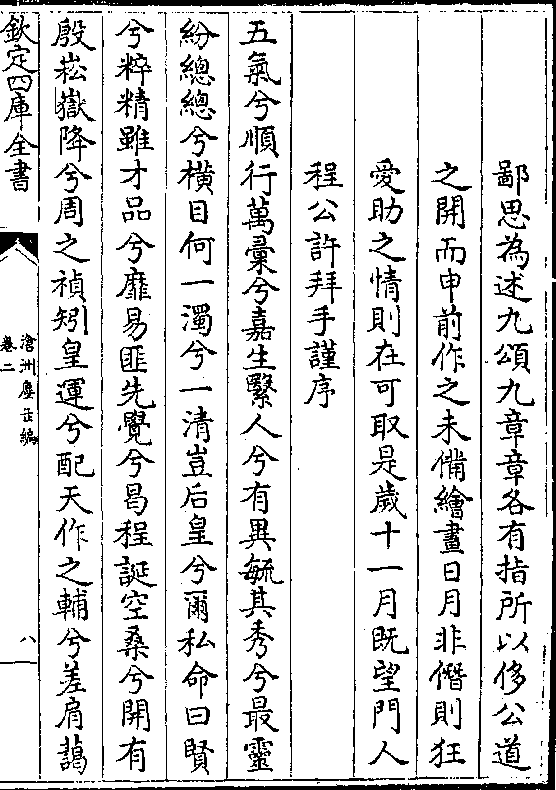 鄙思為述九頌九章章各有指所以侈公道
之開而申前作之未備繪畫日月非僭則狂
愛助之情則在可取是歲十一月既望門人
程公許拜手謹序
五氣兮順行萬彙兮嘉生繄人兮有異毓其秀兮最靈
紛總總兮橫目何一濁兮一清豈后皇兮爾私命曰賢
兮粹精雖才品兮靡易匪先覺兮曷程誕空桑兮開有
殷崧嶽降兮周之禎矧皇運兮配天作之輔兮差肩藹
欽定四庫全書
滄洲塵缶編
卷二
八